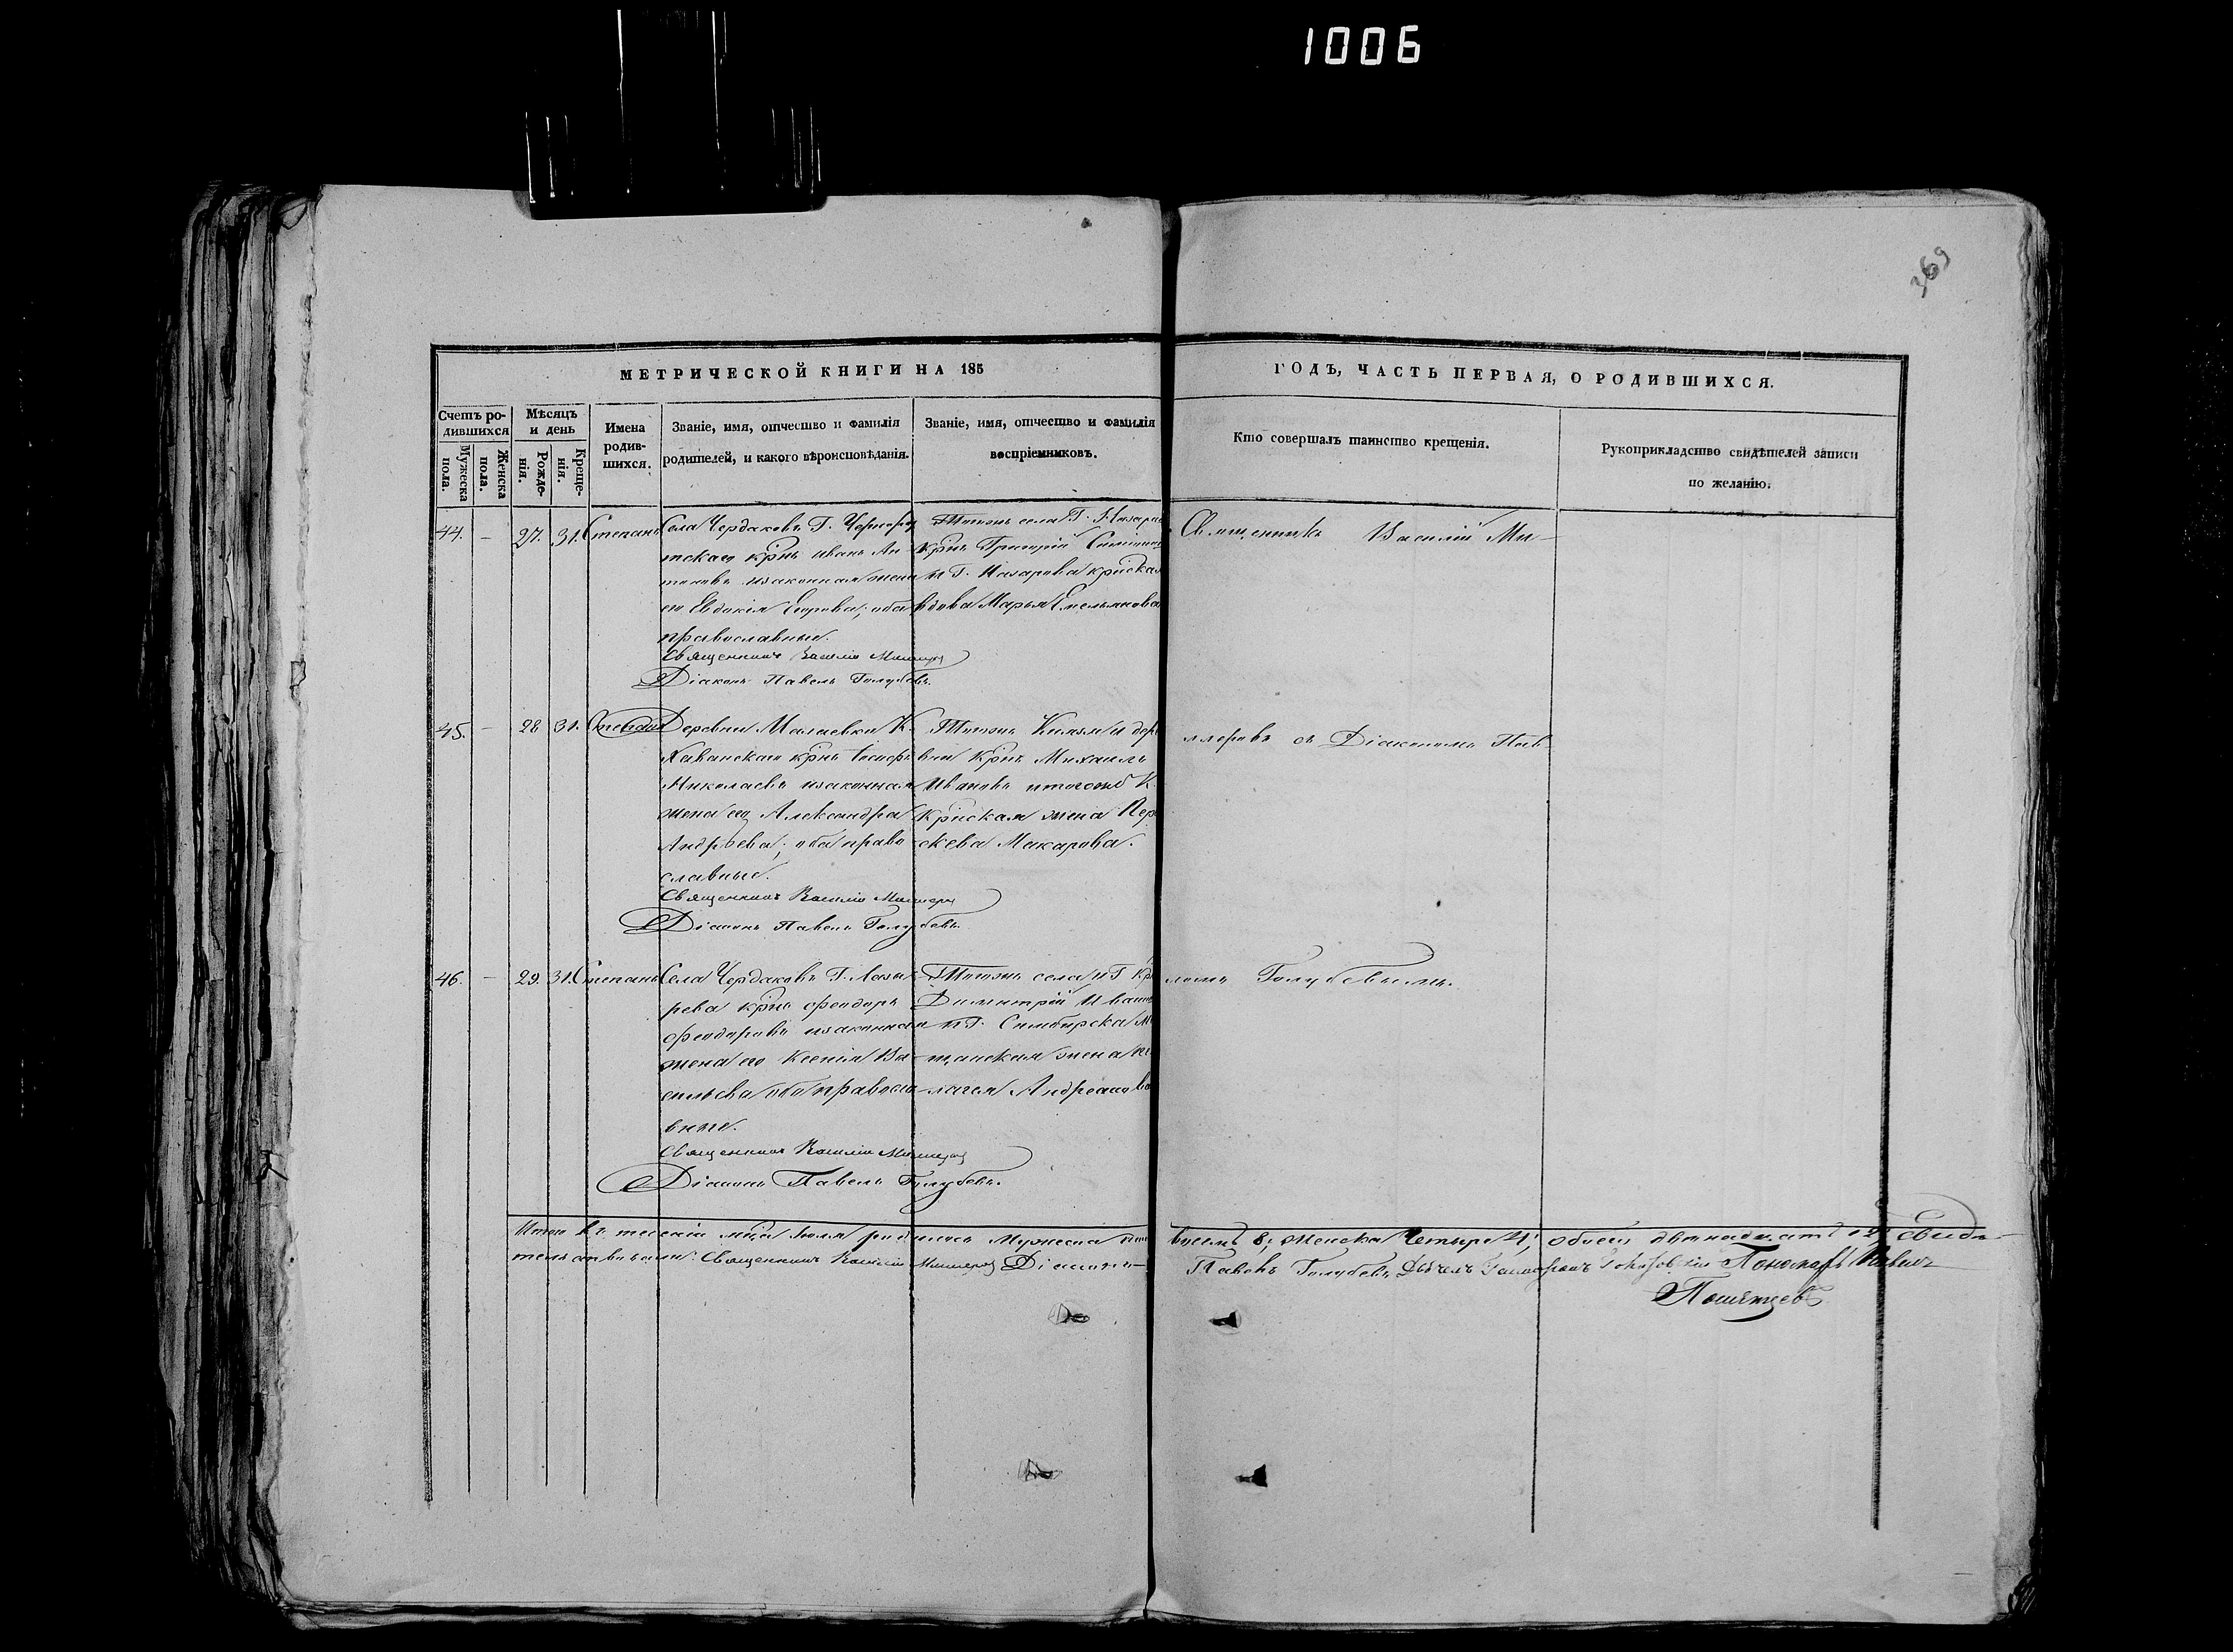 1006
369
МЕТРИЧЕСКОЙ КНИГИ НА 185
ГОДЪ, ЧАСТЬ ПЕРВАЯ, О РОДИВШИХСЯ.
Счетъ ро-
дившихся
Мужеска
пола.
Женска
пола.
Мѣсяцъ
и день
Рожде-
нія.
Креще-
нія.
Имена
родив-
шихся.
Званіе, имя, отчество и фамилія
родителей, и какого вѣроисповѣданія.
Званіе, имя, отчество и фамилія
воспріемниковъ.
Кто совершалъ таинство крещенія.
Рукоприкладство свидѣтелей записи
по желанію.
44. – 27. 31. Степанъ
Села Чердаковъ Г.
тскаго крнъ Иванъ Ан-
тоновъ изаконная жена
его Евдокія Егорова; оба
православные.
Священникъ Василій
Діаконъ Павелъ Голубевъ.
Тотонъ села Г.
крнъ Григорій
и Г. Назарова крнская
вдова Марья Емельянова
Священникъ Василій Ми-
45. – 28 31. Степанъ
Деревни Малаевки К.
Хованскаго крнъ
Николаевъ изаконная
жена его Александра
Андреева; оба право-
славные.
Священникъ Василій
Діаконъ Павелъ Голубевъ.
Тотонъ Князя и дере
вни крнъ Михаилъ
Ивановъ итогожъ К.
крнская жена Пер
скева Макарова.
ллеровъ съ Діакономъ Пав
46. – 29. 31. Степанъ
Села Чердаковъ Г. Наза-
рева крнъ Феодоръ
Феодоровъ изаконная
жена его Ксенія Ва-
сильева оба правосла-
вные.
Священникъ Василій
Діаконъ Павелъ Голубевъ.
Тотонъ села и Г. кр
Димитрій Ивано
и Г. Симбирска М
щанская жена Пе
лагея Андреанова
ломъ Голубевымъ.
Итого въ теченіи мца Іюля родилось Мужеска пола
восемь 8; Женска Четыре 4; обоего двенадцать 12 свидѣ-
тельствовали: Священникъ Василій Діаконъ
Павелъ Голубевъ Пономарь Павелъ